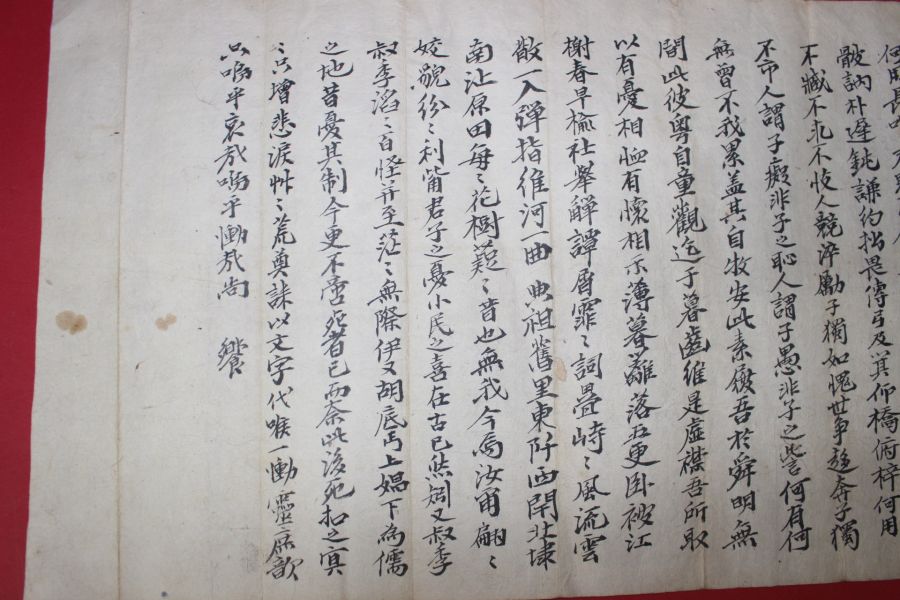 骸訥朴遲鈍謙約拙畏傳弓及箕仰橋俯梓何用
不臧不求不忮人競淬勵子獨如愧世爭趍奔子獨
不市人謂子癡非子之恥人謂子愚非子之訾何有何
無曾不我累盖其自牧安此素履吾於舜明無
閒此彼粤自童觀迄于暮齒維是虛襟吾所取
以有憂相恤有懷相示薄暮籬落五更卧被江
榭春早楡社擧觶譚屑霏〻詞疊峙〻風流雲
散一入彈指維河一曲典祖舊里東阡西閈北埭
南沚原田每〻花樹蕤〻昔也無我今焉汝甭翩〻
姣貌紛〻利觜君子之憂小民之喜在古已然矧又叔季
叔季滔〻百怪并至茫〻無際伊又胡底丐上娼下為儒
之地昔憂其制今更不啻死者已而奈此後死扣之冥
〻只增悲淚艸〻荒奠誄以文字代喉一慟靈庶歆
只嗚乎哀哉嗚乎慟哉尚
饗